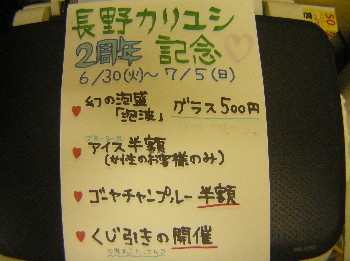 長野カリユシ
2周年 記念
6/30(火)〜 7/5(日)
♥ 幻の泡盛
「泡波」 グラス 500円
♥ アイス半額
(女性のお客様のみ)
♥ ゴーヤチャンプルー 半額
♥ くじ引きの開催
50